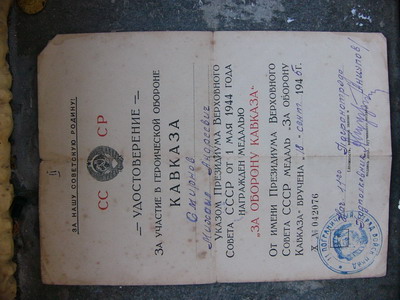 ЗА НАШУ СОВЕТСКУЮ РОДИНУ!
СС СР
УДОСТОВЕРЕНИЕ
ЗА УЧАСТИЕ В ГЕРОИЧЕСКОЙ ОБОРОНЕ
КАВКАЗА
Смирнов
Михаил
Указом Президиума Верховного
Совета СССР от 1 мая 1944 года
НАГРАЖДЕН МЕДАЛЬЮ
„ЗА ОБОРОНУ КАВКАЗА“
От имени Президиума Верховного
Совета СССР медаль „За оборону
Кавказа“ вручена 18 сент. 1945 г.
Х № 042076
Погранотряда
Подполковник